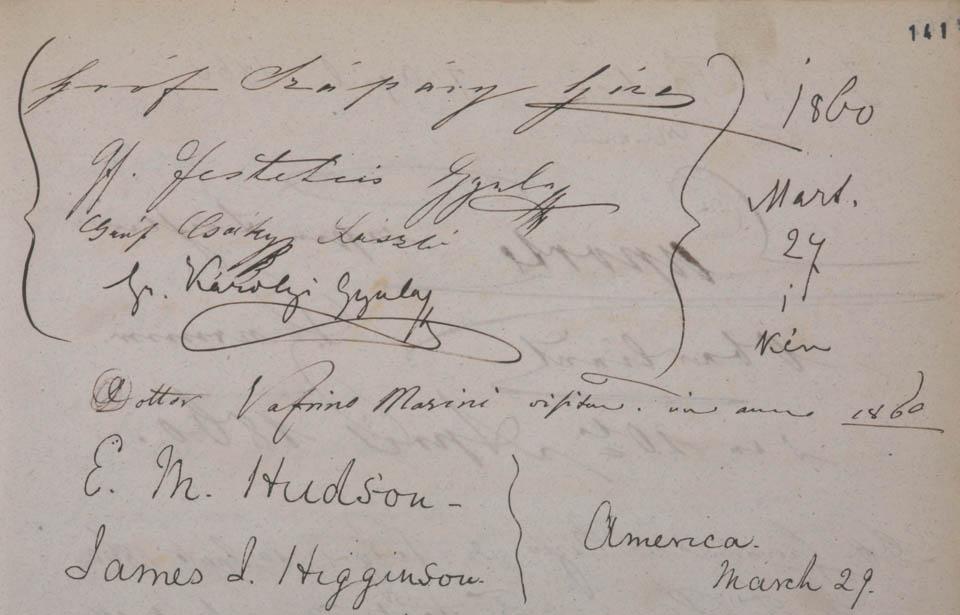 141
gróf Szápáry Géza
1860
Gf. Festetics Gyula
Mart.
Gróf Csáky László
27
Gr. Károlyi Gyula
i
kén
Dottor Vafrino Marini visitau. in anno 1860
E. M. Hudson -
James J. Higginson.
America.
March 29.